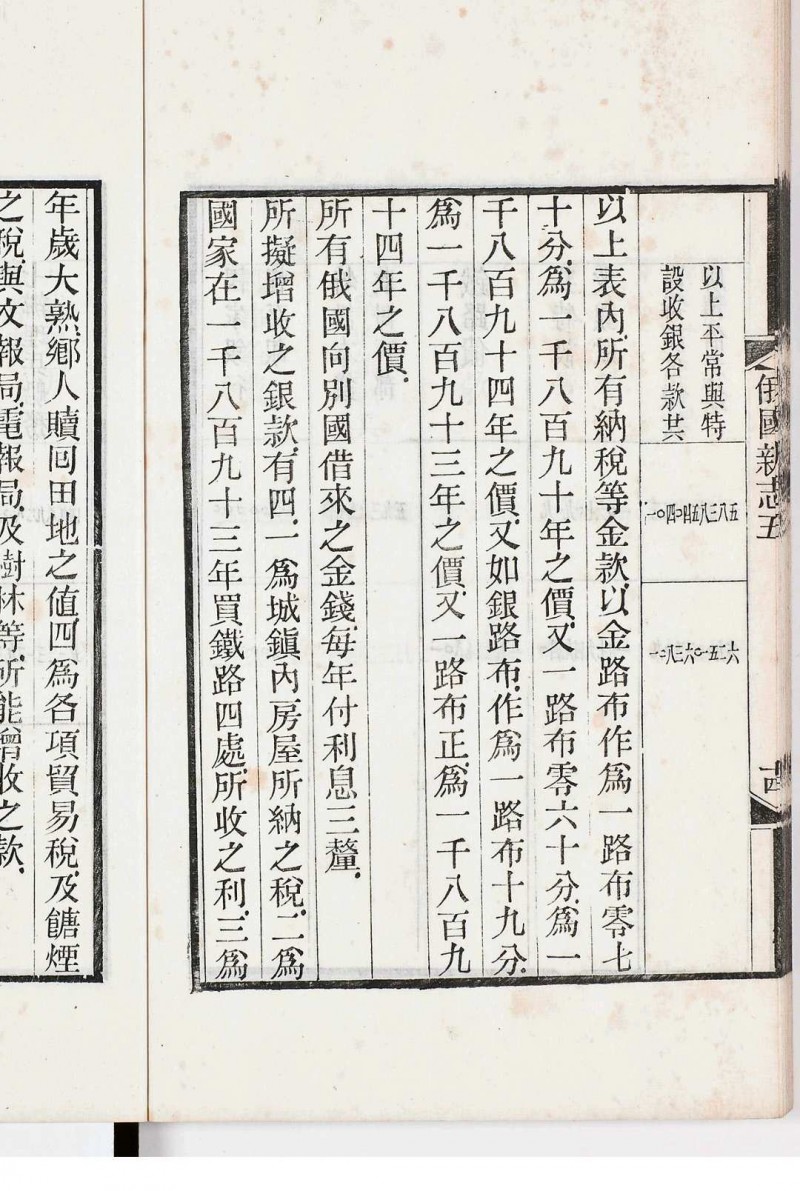 俄國新志五
十四
以上平常與特
設收銀各款共
一〇四〇四五八三八五
以上表內所有納稅等金款以金路布作爲一路布零七
十分爲一千八百九十年之價又一路布零六十分爲一
千八百九十四年之價又如銀路布作爲一路布十九分
爲一千八百九十三年之價又一路布正爲一千八百九
十四年之價
所有俄國向別國借來之金錢每年付利息三釐
所擬增收之銀款有四一爲城鎮內房屋所納之稅二爲
國家在一千八百九十三年買鐵路四處所收之利三爲
年歲大熟鄉人贖囘田地之值四爲各項貿易稅及餹煙
之稅與文報局電報局及樹林等所能增收之款